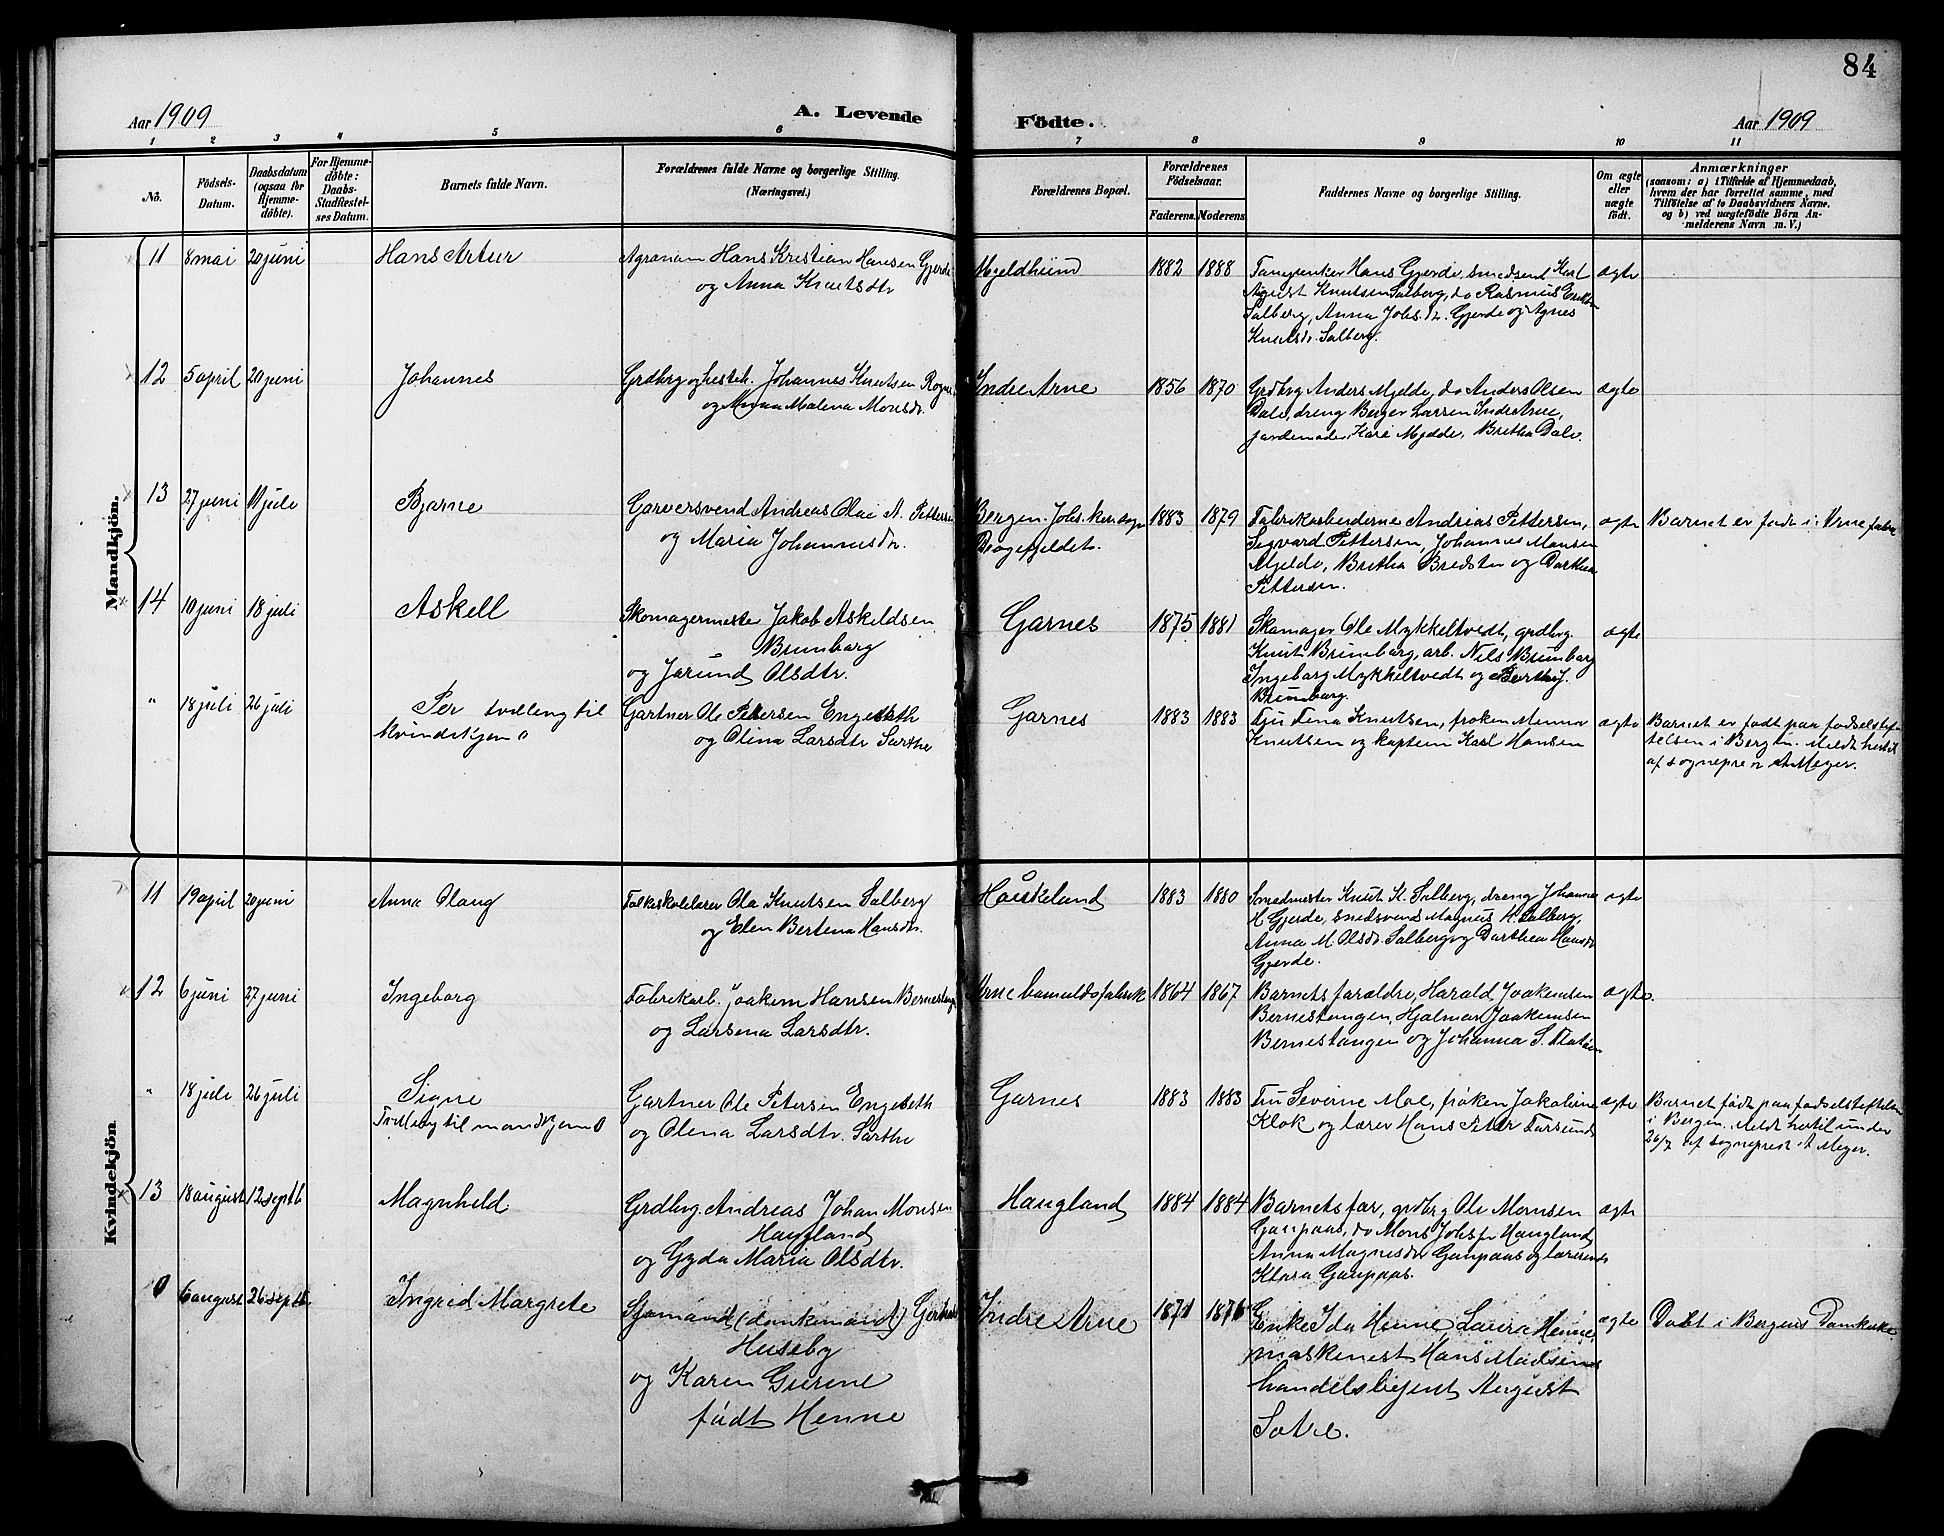 84
Aar 1909
A. Levende
Födte.
Aar 1909
1 2 3 4 5 6 7 8 9 10 11
No.
Födsels-
Datum.
Daabsdatum
(ogsaa for
Hjemme-
döbte).
For Hjemme-
döbte:
Daabs-
Stadfæstel-
ses Datum.
Barnets fulde Navn.
Forældrenes fulde Navne og borgerlige Stilling.
(Næringsvei.)
Forældrenes Bopæl.
Forældrenes
Födselsaar.
Faderens. Moderens
Faddernes Navne og borgerlige Stilling.
Om ægte
eller
uægte
födt.
Anmærkninger
(saasom: a) i Tilfælde af Hjemmedaab,
hvem der har forrettet samme, med
Tilföielse af to Daabsvidners Navne.
og b) ved uægtefödte Börn An-
melderens Navn m. V.)
Mandkjön.
11 8 mai 20 juni Hans Artur
Agronom Hans Kristian Hansen Gjerde
og Anna Knutsdtr
Mjeldheim 1882 1888
Hans Gjerde, smedsvend Karl
August Knutsen Salberg, do Rasmus
Salberg, Anna Johs.dr. Gjerde og Agnes
Knutsdr. Salberg.
ægte
12 5 april 20 juni Johannes
Grdbrg og hesteh. Johannes Knutsen
og Anna Malena Monsdr.
Indre Arne 1856 1870
Grdbrg Anders Mjelde, do Anders Olsen
Dale, dreng Berger Larsen Indre Arne,
jordemoder Kari Mjelde, Britha Dale.
ægte
13 27 juni 11 juli Bjarne
Garversvend Andreas Olai A. Pettersen
og Maria Johannesdr.
Bergen. Johs. kirkesogn
1883 1879
Fabrikarbeiderne Andreas Pettersen,
Sigvard Pettersen, Johannes Monsen
Mjelde, Britha Bredsten og Dorthea
Pettersen.
ægte
Barnet er født i Arne fabr
14 10 juni 18 juli Askell
Skomagermester Jakob Askeldsen
Brunborg
og Jørund Olsdtr.
Garnes 1875 1881
Skomager Ole Mykkeltvedt, grdbrg.
Knut Brunborg, arb. Nils Brunborg
Ingeborg Mykkeltvedt og Bertha J.
Brunborg.
ægte
" 18 juli 26 juli Per tvilling til
kvindekjøn 0
Gartner Ole Petersen Engeseth
og Olina Larsdtr Sarthe
Garnes 1883 1883
Fru Tena Knutsen, frøken Menna
Knutsen og kaptein Karl Hansen
ægte
Barnet er født paa fødselsstif-
telsen i Bergen. Meldt hertil
af sogneprest A Meyer.
Kvindekjön
11 19 april 20 juni Anna Olaug
Folkeskolelærer Ola Knutsen Salberg
og Elen Bertena Hansdr.
Haukeland 1883 1880
Smedmester Knut K. Salberg, dreng Johannes
H Gjerde, smedsvend Magnus K. Salberg,
Anna M. Olsdr. Salberg og Dorthea Hansdr
Gjerde.
ægte
12 6 juni 27 juni Ingeborg
Fabrikarb. Joakim Hansen Bernestangen
og Larsena Larsdtr.
Arne bomuldsfabrik 1864 1867
Barnets forældre, Harald Joakimsen
Bernestangen, Hjalmar Joakimsen
Bernestangen og Johanna S. Flatøen
ægte.
" 18 juli 26 juli Signe
Tvilling til mandkjøn 0
Gartner Ole Petersen Engeseth
og Olena Larsdtr. Sarthe
Garnes 1883 1883
Fru Severine Moe, frøken Jakobine
Klok og lærer Hans Peter Farsund
ægte
Barnet født paa fødselsstiftelsen
i Bergen. Meldt hertil under
26/7 af sogneprest A Meyer.
13 18 august 12 septb Magnhild
Grdbrg. Andreas Johan Monsen
Haugland
og Gyda Maria Olsdtr.
Haugland 1884 1884
Barnets far, grdbrg Ole Monsen
Gaupaas, do Mons Johs.sr Haugland
Anna Magnesdr Gaupaas og lærerinde
Klara Gaupaas.
ægte
0 6 august 26 septb. Ingrid Margrete
Sjømand
Huseby
og Karen Gurine
født Henne
Indre Arne 1871 1876
Enke Ida Henne, Laura Henne,
maskinist Hans Madsen
handelsbetjent August
ægte
Døbt i Bergens Domkirke